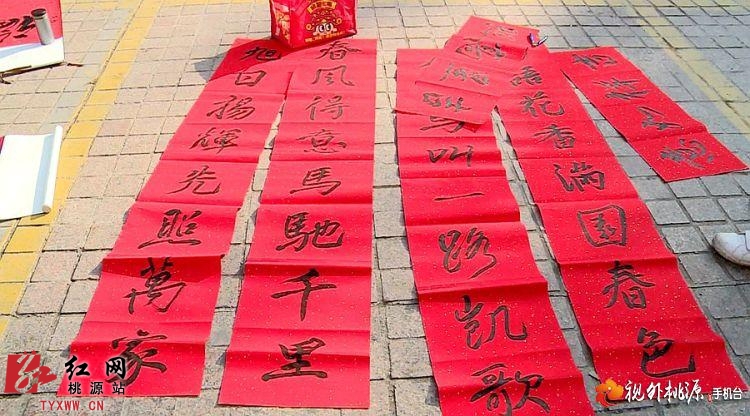 春風得意馬馳千里
旭日揚輝光照萬家
語花香滿園春色
馬叫一路凱歌
红网
桃源站
TYXWW.CN
视外桃源·手机台